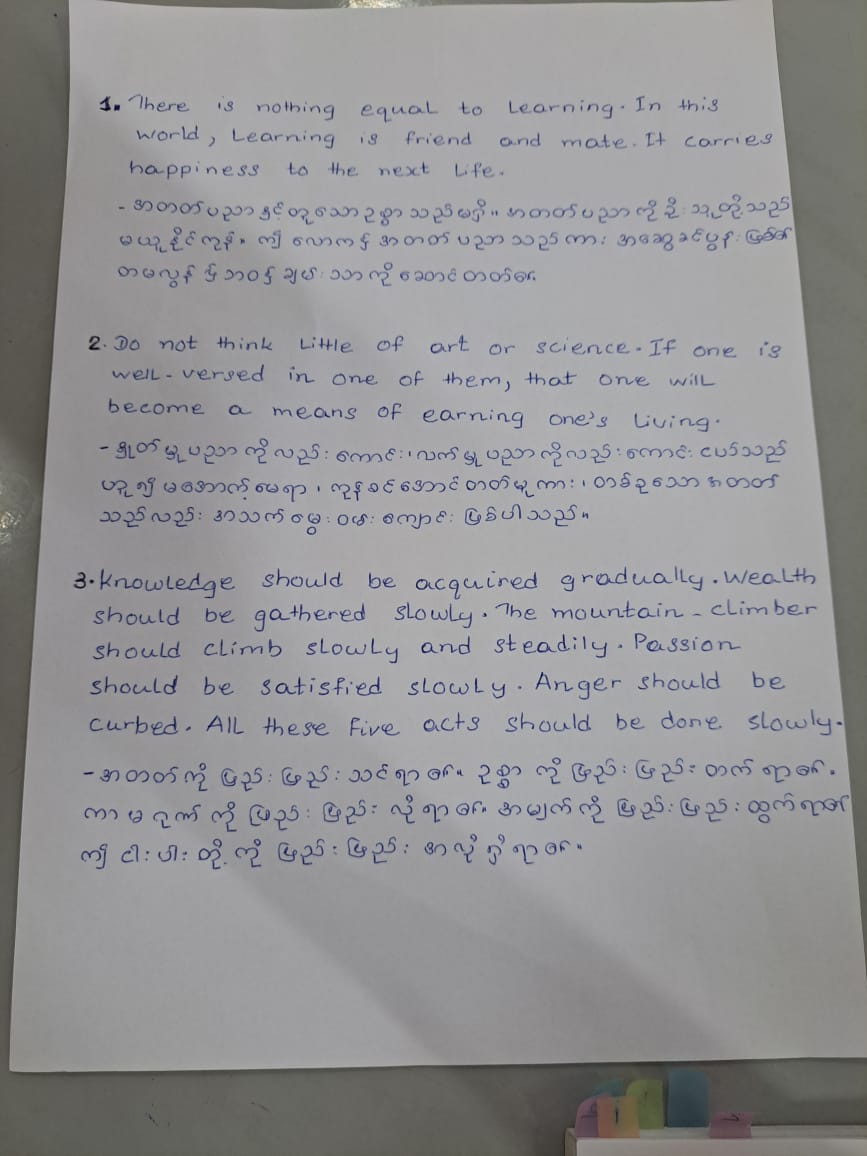 1. There is nothing equal to Learning. In this
world, Learning is friend and mate. It carries
happiness to the next Life.
- အတတ်ပညာနှင့်တူသော ဥစ္စာသည်မရှိ။ အတတ်ပညာကို ခိုးသူတို့သည်
မယူနိုင်ကုန်။ ဤလောက၌ အတတ်ပညာသည်ကား အဆွေခင်ပွန်းဖြစ်၏
တမလွန် ၌ဘဝ၌ ချမ်းသာကို ဆောင်တတ်၏။
2. Do not think Little of art or science. If one is
well-versed in one of them, that one will
become a means of earning one's Living.
- နှုတ်မှုပညာကိုလည်းကောင်း၊ လက်မှုပညာကိုလည်းကောင်း ငယ်သည်
ဟူ၍ မအောက်မေ့ရာ၊ ကုန်စင်အောင်တတ်မူကား၊ တစ်ခုသော အတတ်
သည်လည်း အသက်မွေးဝမ်းကျောင်း ဖြစ်ပါသည်။
3. Knowledge should be acquired gradually. Wealth
should be gathered slowly. The mountain-climber
should climb slowly and steadily. Passion
should be satisfied slowly. Anger should be
curbed. All these five acts should be done slowly.
- အတတ်ကို ဖြည်းဖြည်း သင်ရာ၏။ ဥစ္စာကို ဖြည်းဖြည်း တက်ရာ၏။
ကာမဂုဏ်ကို ဖြည်းဖြည်း လိုရာ၏။ အမျက်ကို ဖြည်းဖြည်း ထွက်ရာ၏
ဤ ငါးပါးတို့ကို ဖြည်းဖြည်း အလိုရှိရာ၏။